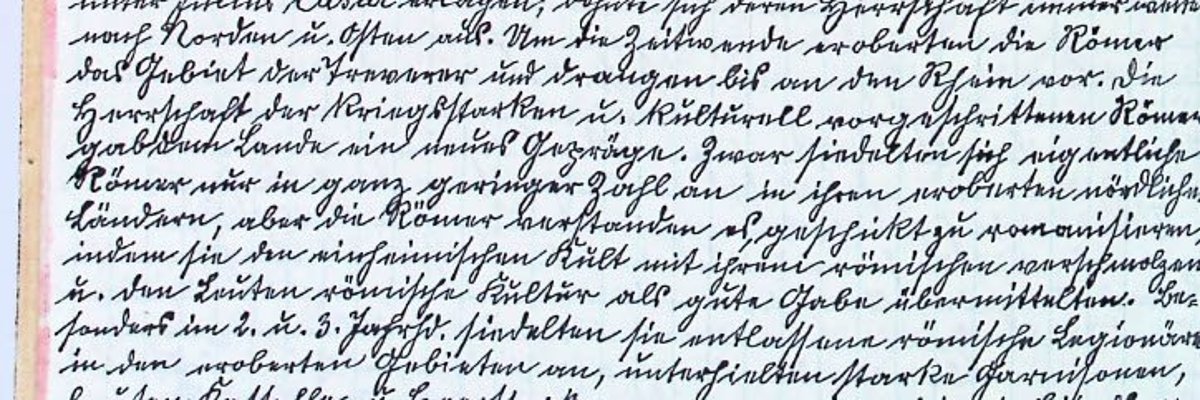 unter Julius Cäsar erlagen, dehnte sich deren Herrschaft immer weiter
nach Norden u. Osten aus. Um die Zeitwende eroberten die Römer
das Gebiet der Treverer und drangen bis an den Rhein vor. Die
Herrschaft der kriegsstarken u. kulturell vorgeschrittenen Römer
gab dem Lande ein neues Gepräge. Zwar siedelten sich eigentliche
Römer nur in ganz geringer Zahl an in ihren eroberten nördlichen
Ländern, aber die Römer verstanden es, geschickt zu romanisieren,
indem sie den einheimischen Kult mit ihrem römischen verschmolzen
u. den Leuten römische Kultur als gute Gabe übermittelten. Be-
sonders im 2. u. 3. Jahrhd. siedelten sie entlassene römische Legionäre
in den eroberten Gebieten an, unterhielten starke Garnisonen,